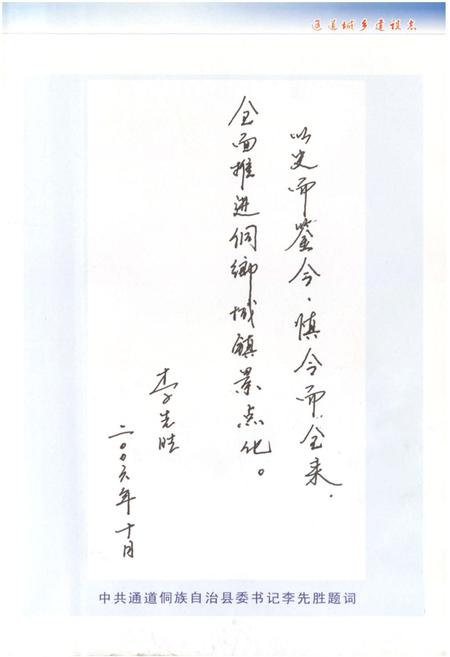 通道城乡建设志
以史而鉴今，慎今而全来．
全面推进侗鄉城镇景点化。
李先胜
二〇〇六年十月
中共通道侗族自治县委书记李先胜题词